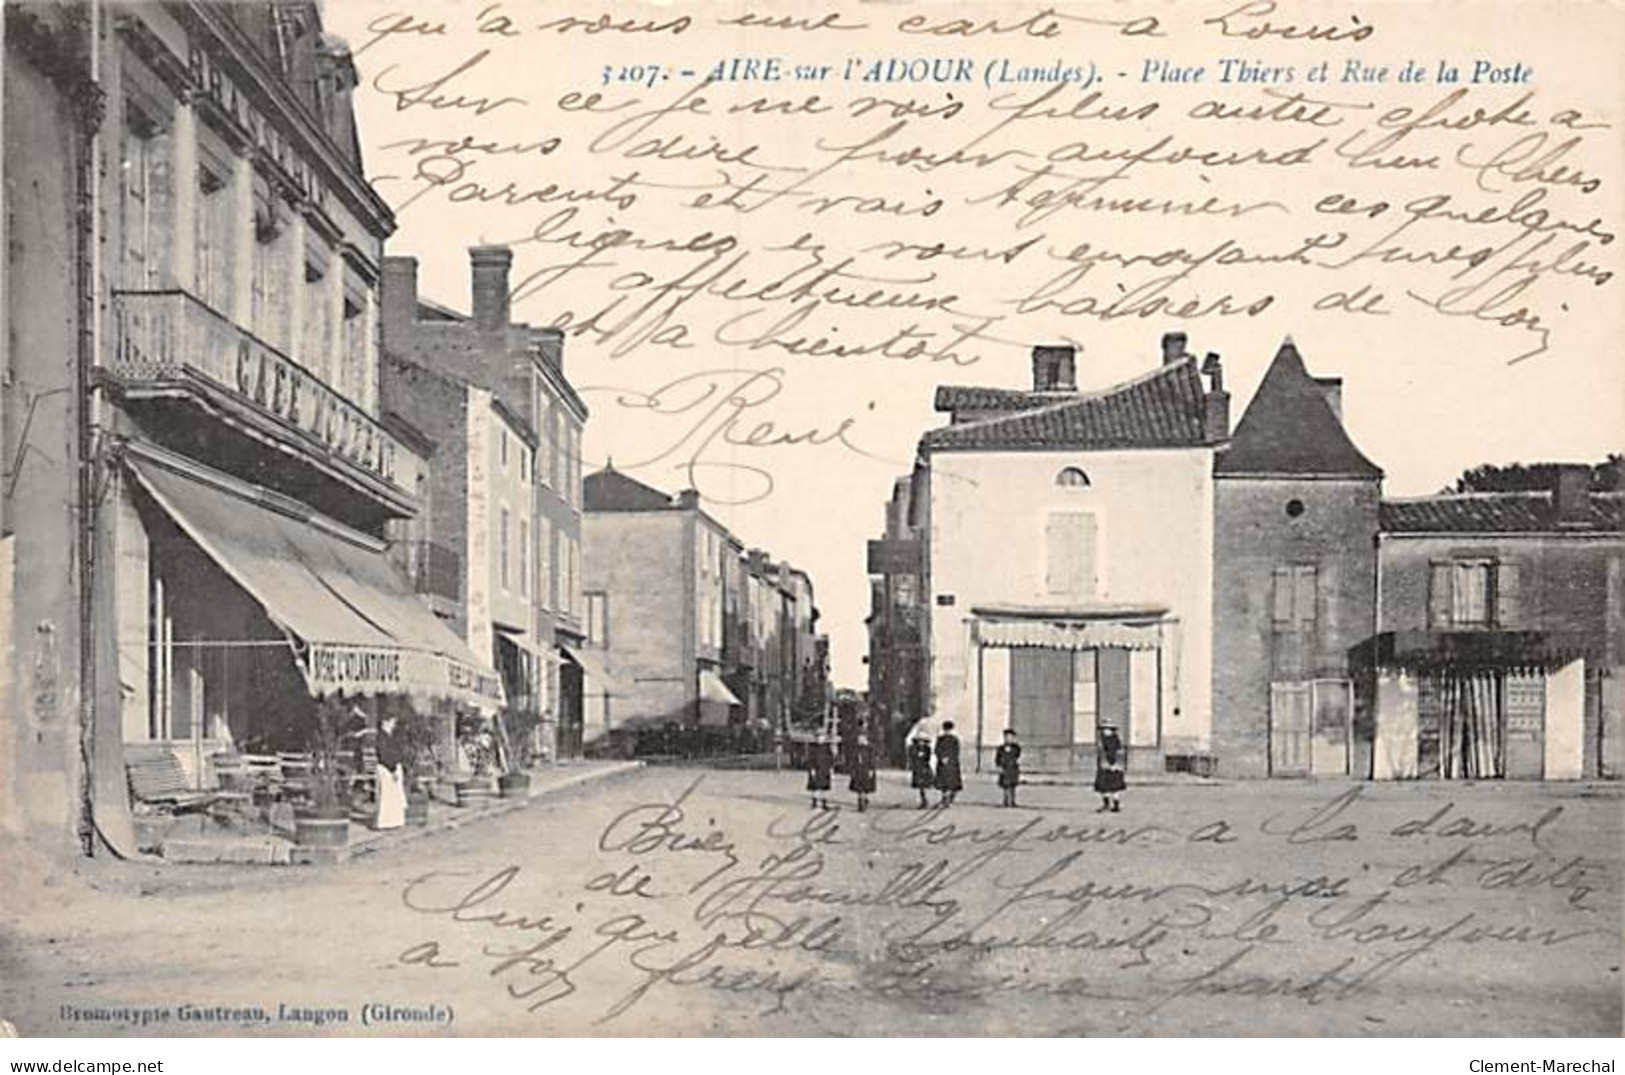 qu'a vous une carte a Louis
3207. - AIRE-sur l'ADOUR (Landes). - Place Thiers et Rue de la Poste
Sur ce je ne vois plus autre chose a
vous dire pour aujourd hui Chers
Parents et vais terminer ces quelques
lignes en vous envoyant mes plus
affectueux baisers de loin
et a bientot
René
GRAND
CAFÉ
BIÈRE L'ATLANTIQUE
Bien le bonjour a la dame
de Houilles pour moi et dite
lui qu'elle souhaite le bonjour
a son frère de ma part
Bromotypie Gautreau, Langon (Gironde)
www.delcampe.net
Clement-Marechal